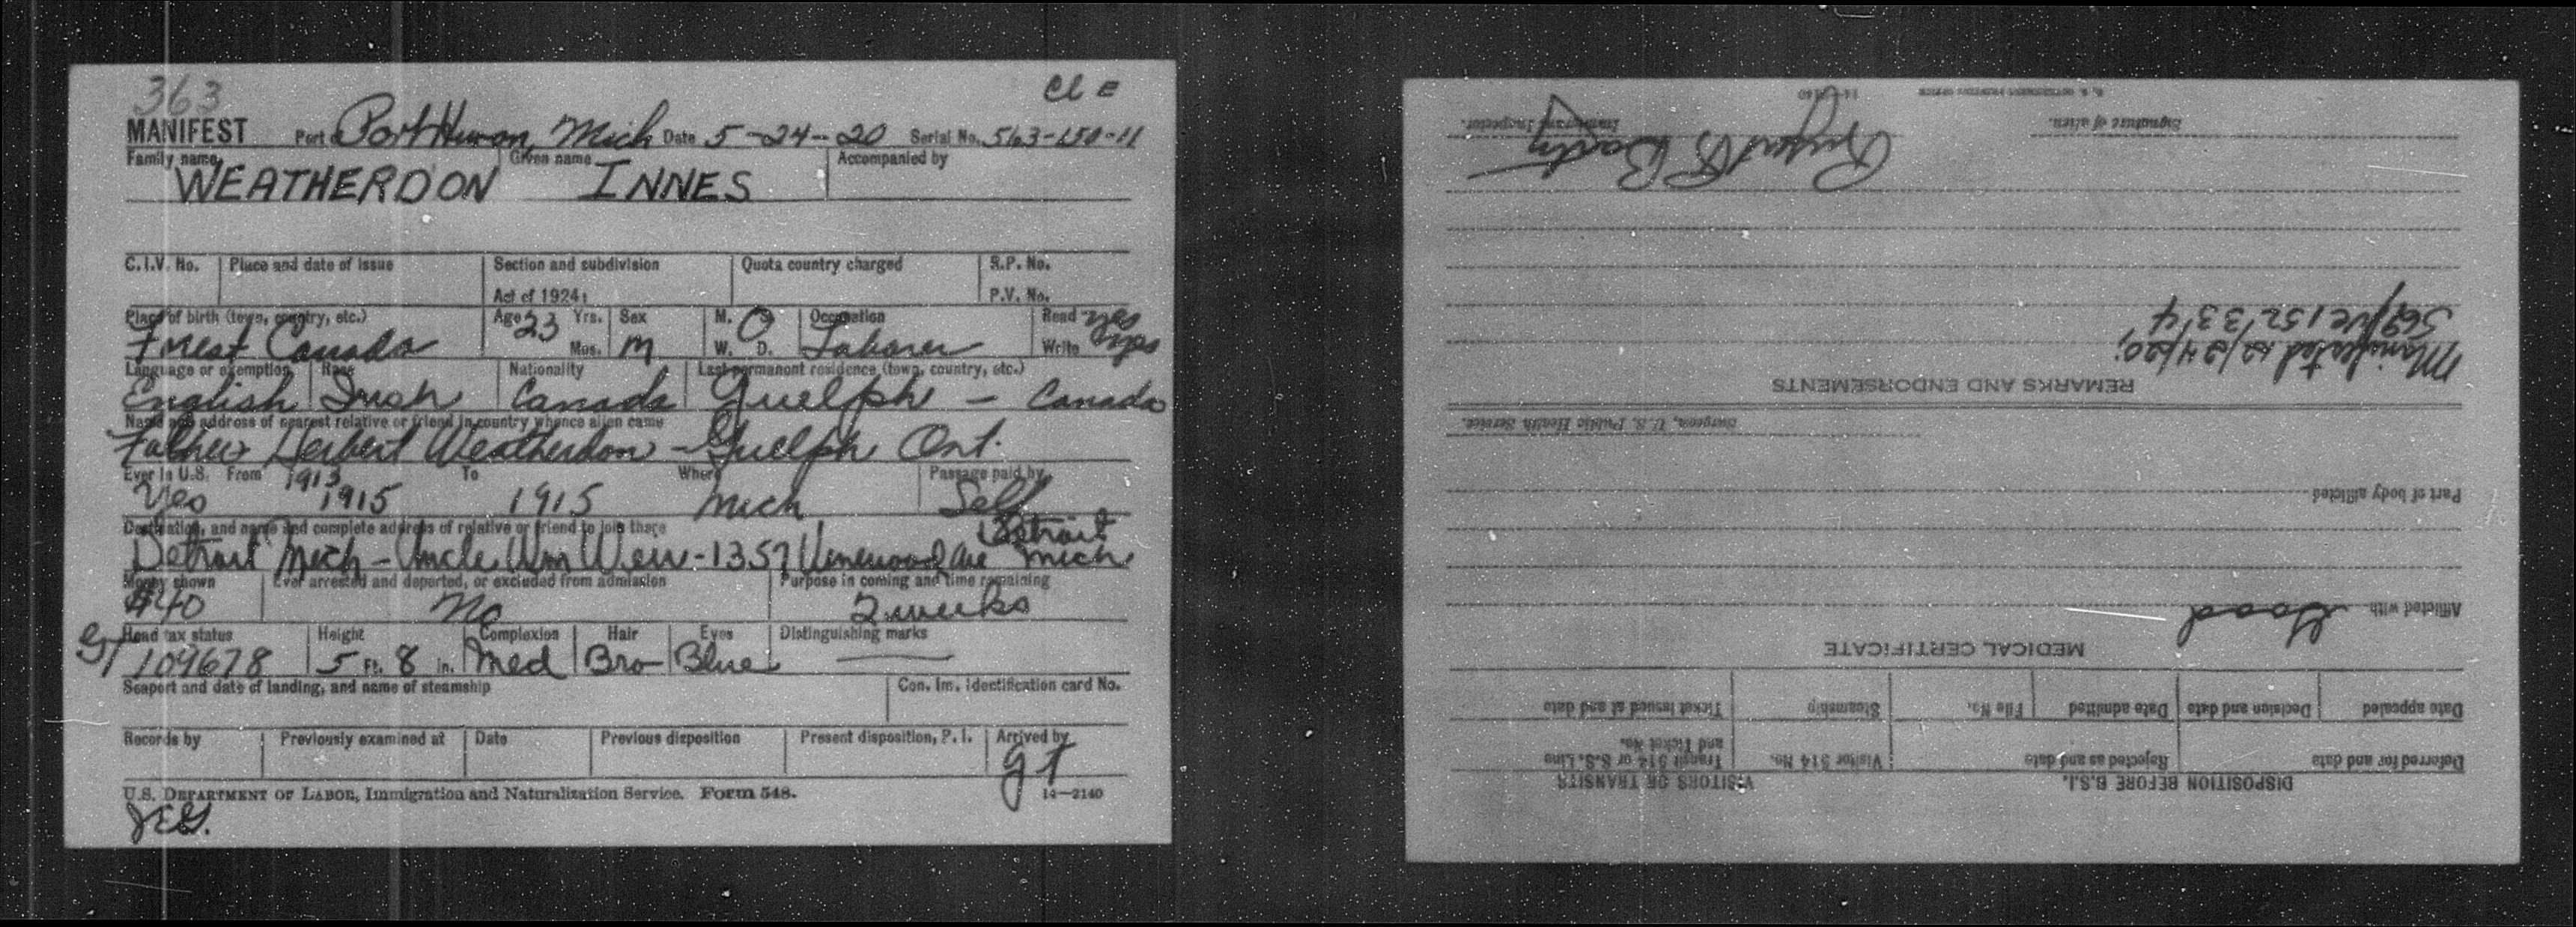 363
Cl E
MANIFEST Port of Port Huron, Mich Date 5-24-20 Serial No. 563-150-11
Family name Given name Accompanied by
WEATHERDON INNES
C.I.V. No. Place and date of issue Section and subdivision Quota country charged R.P. No.
Act of 1924: P.V. No.
Place of birth (town, country, etc.) Age 23 Yrs. Sex M. S. Occupation Read yes
Forest Canada Mos. M W. D. Laborer Write yes
Language or exemption Race Nationality Last permanent residence (town, country, etc.)
English Irish Canada Guelph - Canada
Name and address of nearest relative or friend in country whence alien came
Father Herbert Weatherdon - Guelph Ont.
Ever in U.S. From 1913 To Where Passage paid by
Yes 1915 1915 Mich Self
Destination, and name and complete address of relative or friend to join there Detroit
Detroit Mich - Uncle Wm Weir - 1357 Vinewood Ave Mich
Money shown Ever arrested and deported, or excluded from admission Purpose in coming and time remaining
$40 No 2 weeks
Head tax status Height Complexion Hair Eyes Distinguishing marks
GT 109678 5 Ft. 8 in. Med Bro Blue
Seaport and date of landing, and name of steamship Con. Im. Identification card No.
Records by Previously examined at Date Previous disposition Present disposition, P. I. Arrived by
GT
U.S. DEPARTMENT OF LABOR, Immigration and Naturalization Service. Form 548. 14—2140
JEG.
DISPOSITION BEFORE B.S.I. VISITORS OR TRANSITS
Deferred for and date Rejected as and date Visitor 514 No. Transit 514 or S.S. Line
and Ticket No.
Date appealed Decision and date Date admitted File No. Steamship Ticket issued at and date
MEDICAL CERTIFICATE
Afflicted with Good
Part of body afflicted
Surgeon, U.S. Public Health Service.
REMARKS AND ENDORSEMENTS
Manifested 12/24/20,
Signature of alien. Immigrant Inspector.
U. S. GOVERNMENT PRINTING OFFICE 14—2140